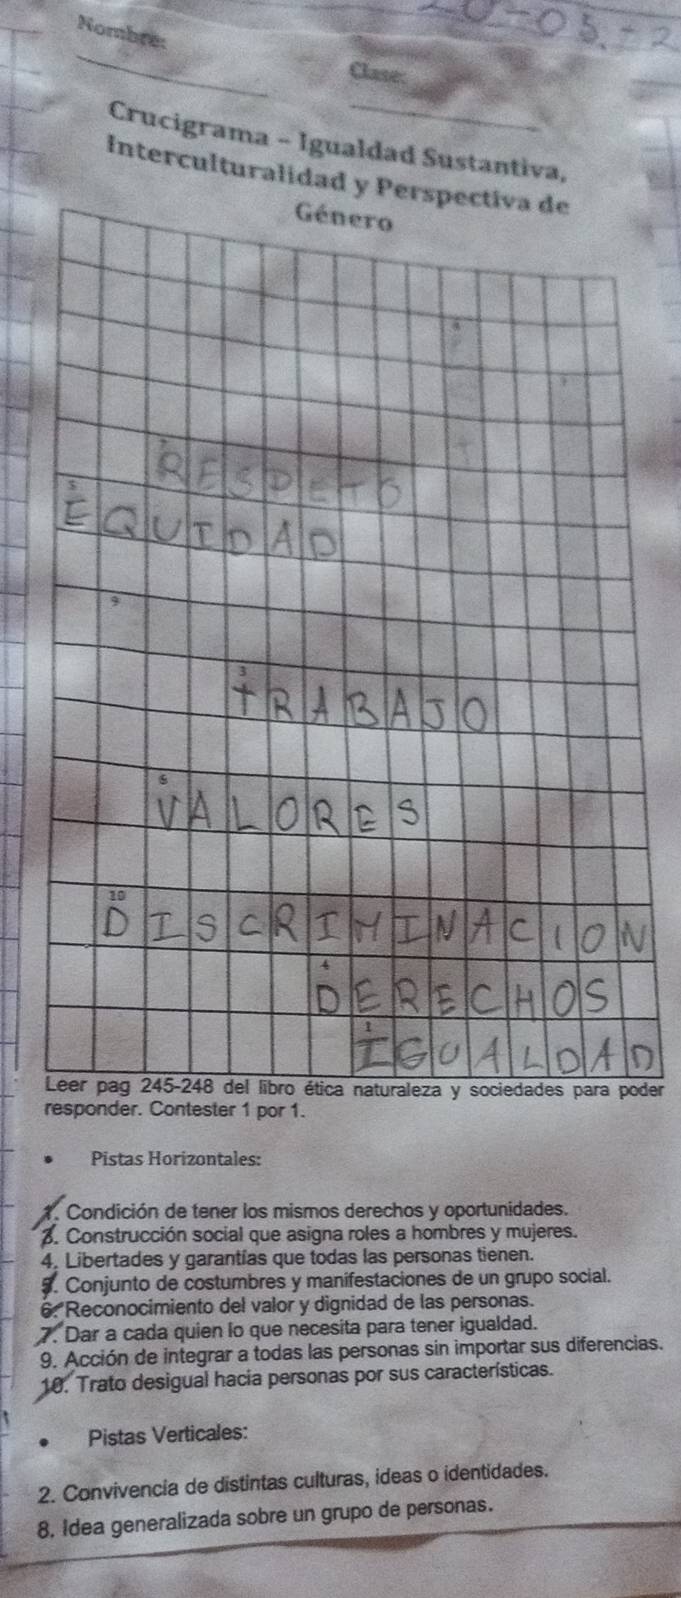 Nombre:
Clase:
Crucigrama - Igualdad Sustantiva,
Interculturalidad y Perspectiva de
Género
RESPETO
5
EQUIDAD
9
3
TRABAJO
6
VALORES
10
DISCRIMINACION
4
DERECHOS
1
IGUALDAD
Leer pag 245-248 del libro ética naturaleza y sociedades para poder
responder. Contester 1 por 1.
• Pistas Horizontales:
1. Condición de tener los mismos derechos y oportunidades.
3. Construcción social que asigna roles a hombres y mujeres.
4. Libertades y garantías que todas las personas tienen.
5. Conjunto de costumbres y manifestaciones de un grupo social.
6. Reconocimiento del valor y dignidad de las personas.
7. Dar a cada quien lo que necesita para tener igualdad.
9. Acción de integrar a todas las personas sin importar sus diferencias.
10. Trato desigual hacia personas por sus características.
• Pistas Verticales:
2. Convivencia de distintas culturas, ideas o identidades.
8. Idea generalizada sobre un grupo de personas.